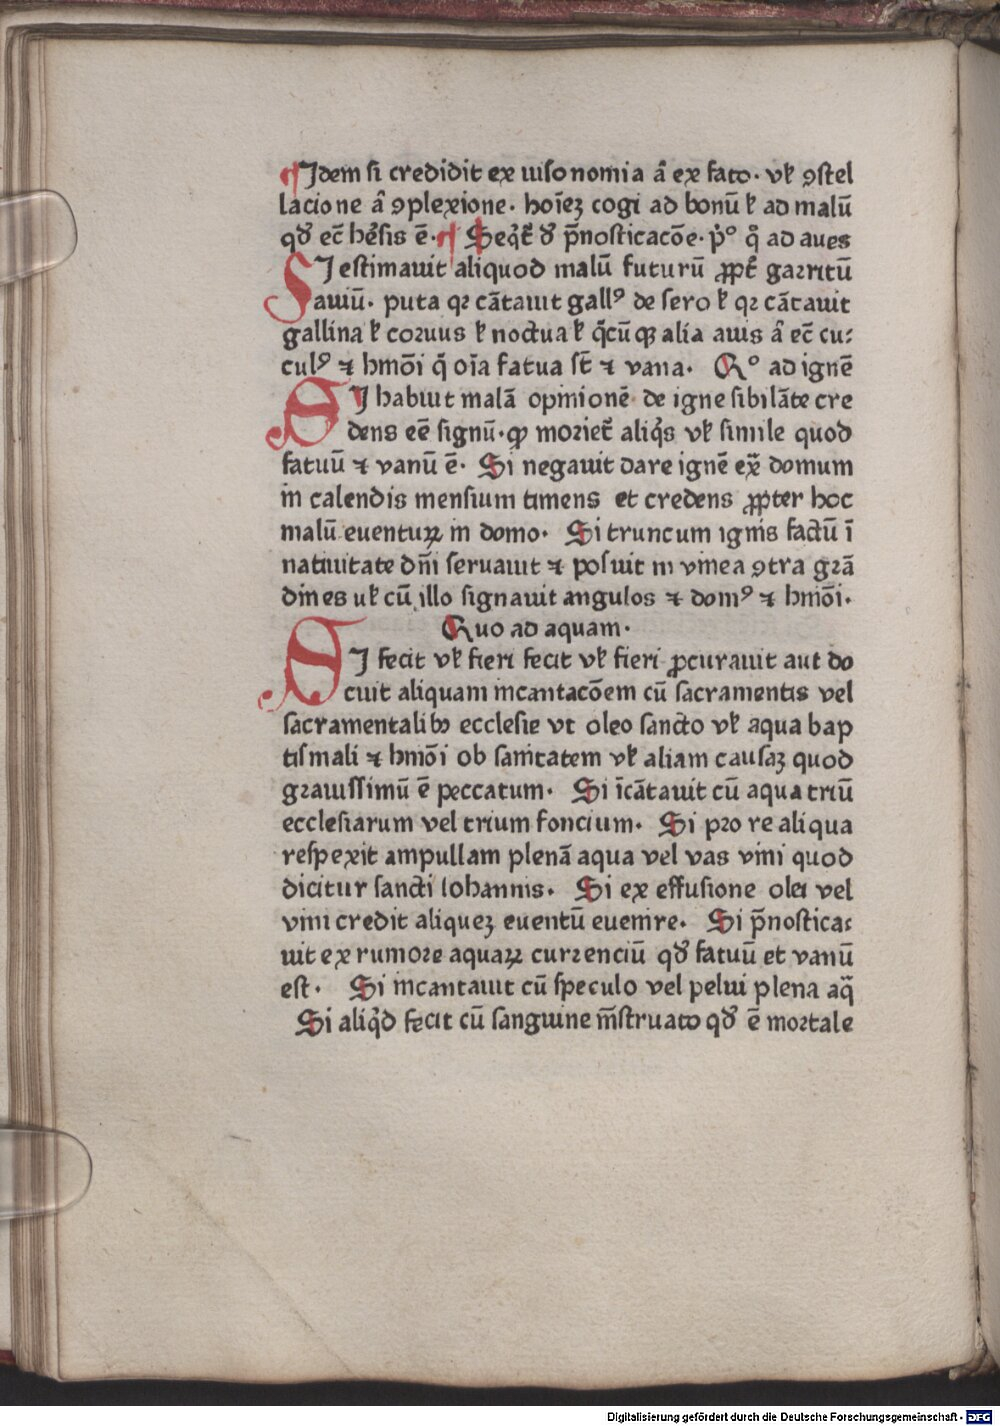 ¶ Idem si credidit ex uisonomia aut̄ ex fato· vł ꝯstel
lacione aut̄ ꝯplexione· hoīez cogi ad bonū ł ad malū
qđ ec̄ hēsis ē· ¶ Seq̄t̄ đ p̄nosticacōe· p̊º q̊ ad aues
SI estimavit aliquod malū futurū ꝓpt̄ garritū
auiū· puta qꝛ cātauit gallꝰ de sero ł qꝛ cātauit
gallina ł coruus ł noctua ł q̄cūqꝫ alia auis ā ec̄ cu⸗
culꝰ ⁊ hmōi q̄ oīa fatua st̄ ⁊ vana· Qº ad ignē
SI habuit malā opinionē de igne sibilāte cre
dens eē signū· ꝙ moriet̄ aliq̇s vł simile quod
fatuū ⁊ vanū ē· Si negauit dare ignē ex̄ domum
in calendis mensium timens et credens ꝓpter hoc
malū euentuꝝ in domo· Si truncum ignis factū ī
natiuitate dn̄i seruauit ⁊ posuit in vinea ꝯtra grā
dines uł cū illo signauit angulos ⁊ domꝰ ⁊ hmōi·
Quo ad aquam·
SI fecit vł fieri fecit vł fieri ꝓcurauit aut do
cuit aliquam incantacōem cū sacramentis vel
sacramentalibꝰ ecclesie vt oleo sancto vł aqua bap
tismali ⁊ hmōi ob sanitatem vł aliam causaꝫ quod
grauissimū ē peccatum· Si īcātauit cū aqua triū
ecclesiarum vel trium foncium· Si pro re aliqua
respexit ampullam plenā aqua vel vas vini quod
dicitur sancti iohannis· Si ex effusione olei vel
vini credit aliqueꝫ euentū euenire· Si p̄nostica⸗
uit ex rumore aquaꝝ currenciū qđ fatuū et vanū
est· Si incantauit cū speculo vel pelui plena aq̄
Si aliq̇d fecit cū sanguine m̄struato qđ ē mortale
Digitalisierung gefördert durch die Deutsche Forschungsgemeinschaft - DFG